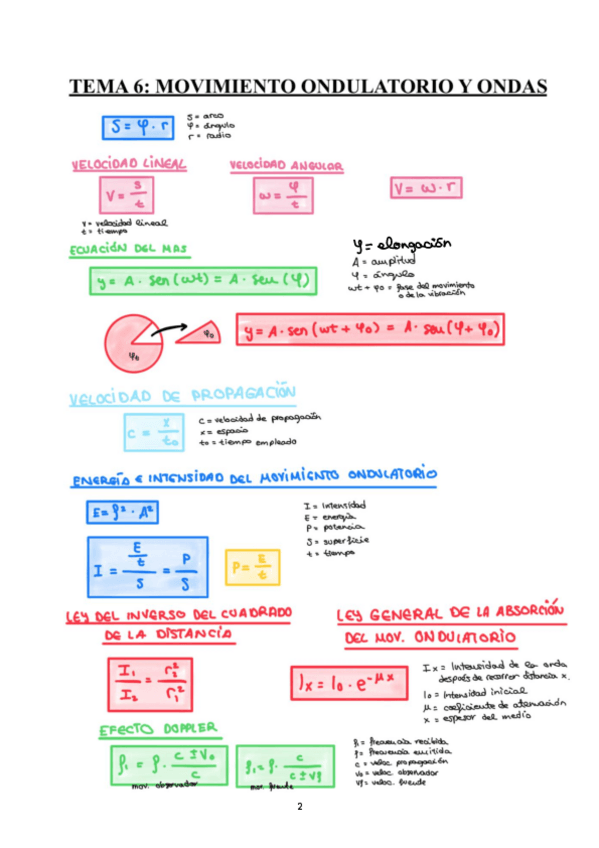 TEMA 6: MOVIMIENTO ONDULATORIO Y ONDAS
S = φ · r
S = arco
φ = ángulo
r = radio
VELOCIDAD LINEAL
VELOCIDAD ANGULAR
V = s/t
ω = φ/t
V = ω · r
v = velocidad lineal
t = tiempo
ECUACIÓN DEL MAS
y = elongación
A = amplitud
φ = ángulo
ωt + φ0 = fase del movimiento
o de la vibración
y = A · sen (ωt) = A · sen (φ)
φ0
φ0
y = A · sen (ωt + φ0) = A · sen (φ + φ0)
VELOCIDAD DE PROPAGACIÓN
c = x/t0
c = velocidad de propagación
x = espacio
t0 = tiempo empleado
ENERGÍA E INTENSIDAD DEL MOVIMIENTO ONDULATORIO
E = f² · A²
I = Intensidad
E = energía
P = potencia
S = superficie
t = tiempo
I = (E/t)/S = P/S
P = E/t
LEY DEL INVERSO DEL CUADRADO
DE LA DISTANCIA
LEY GENERAL DE LA ABSORCIÓN
DEL MOV. ONDULATORIO
I1/I2 = r2²/r1²
Ix = I0 · e^-μx
Ix = Intensidad de la onda
después de recorrer distancia x.
I0 = Intensidad inicial
μ = coeficiente de atenuación
x = espesor del medio
EFECTO DOPPLER
f1 = f · (c ± v0)/c
mov. observador
f1 = f · c/(c ± vf)
mov. fuente
f1 = frecuencia recibida
f = frecuencia emitida
c = veloc. propagación
v0 = veloc. observador
vf = veloc. fuente
2